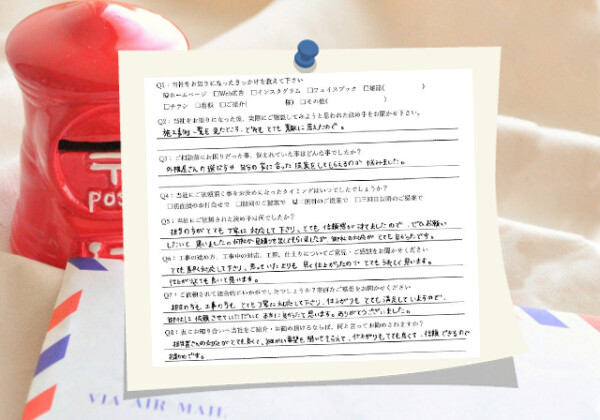 Q1：当社をお知りになったきっかけを教えて下さい
ホームページ □Web広告 □インスタグラム □フェイスブック □雑誌( )
□チラシ □看板 □ご紹介( 様) □その他( )
Q2：当社をお知りになった後、実際にご相談してみようと思われた決め手をお聞かせ下さい。
施工事例一覧を見たところ、どれもとても素敵に思えたので。
Q3：ご相談前にお困りだった事、悩まれていた事はどんな事でしたか？
外構屋さんの選び方や自分の家に合った提案をしてもらえるのか悩みました。
Q4：当社にご依頼頂く事をお決めになったタイミングはいつでしたでしょうか？
□初面談のお打合せで □初回のご提案で 二回目のご提案で □三回目以降のご提案で
Q5：当社に依頼された決め手は何でしたか？
担当の方がとても丁寧に対応して下さり、とても信頼感が持てましたので、ぜひお願い
したいと思いました。
Q6：工事の進め方、工事中の対応、工期、仕上りについてご意見・ご感想をお聞かせください
とても素早く対応して下さり、思っていたよりも早く仕上がったのでとてもうれしく思います。
仕上がりもとても良いと思います。
Q7：ご依頼されて総合的にいかがでしたでしょうか？率直なご感想をお聞かせください
担当の方も工事の方もとても丁寧に対応して下さり、仕上がりもとても満足していますので、
依頼させていただいて本当に良かったと思います。ありがとうございました。
Q8：友だちやお知り合いへ当社をご紹介・お勧め頂けるならば、何と言ってお勧めされますか？
担当者さんの対応がとても良くて、細かい要望も聞いてもらえて、仕上がりもとても良くて、信頼できるので
お勧めです。
POS
VIA AIR MAIL